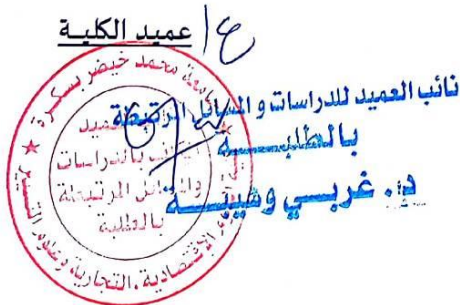 ع/ عميد الكلية
نائب العميد للدراسات و المسائل المرتبطة
بالطلبة
د. غربي وهيبة
جامعة محمد خيضر بسكرة
العميد
المكلف بالدراسات
والمسائل المرتبطة
بالطلبة
الاقتصادية، التجارية وعلوم التسيير